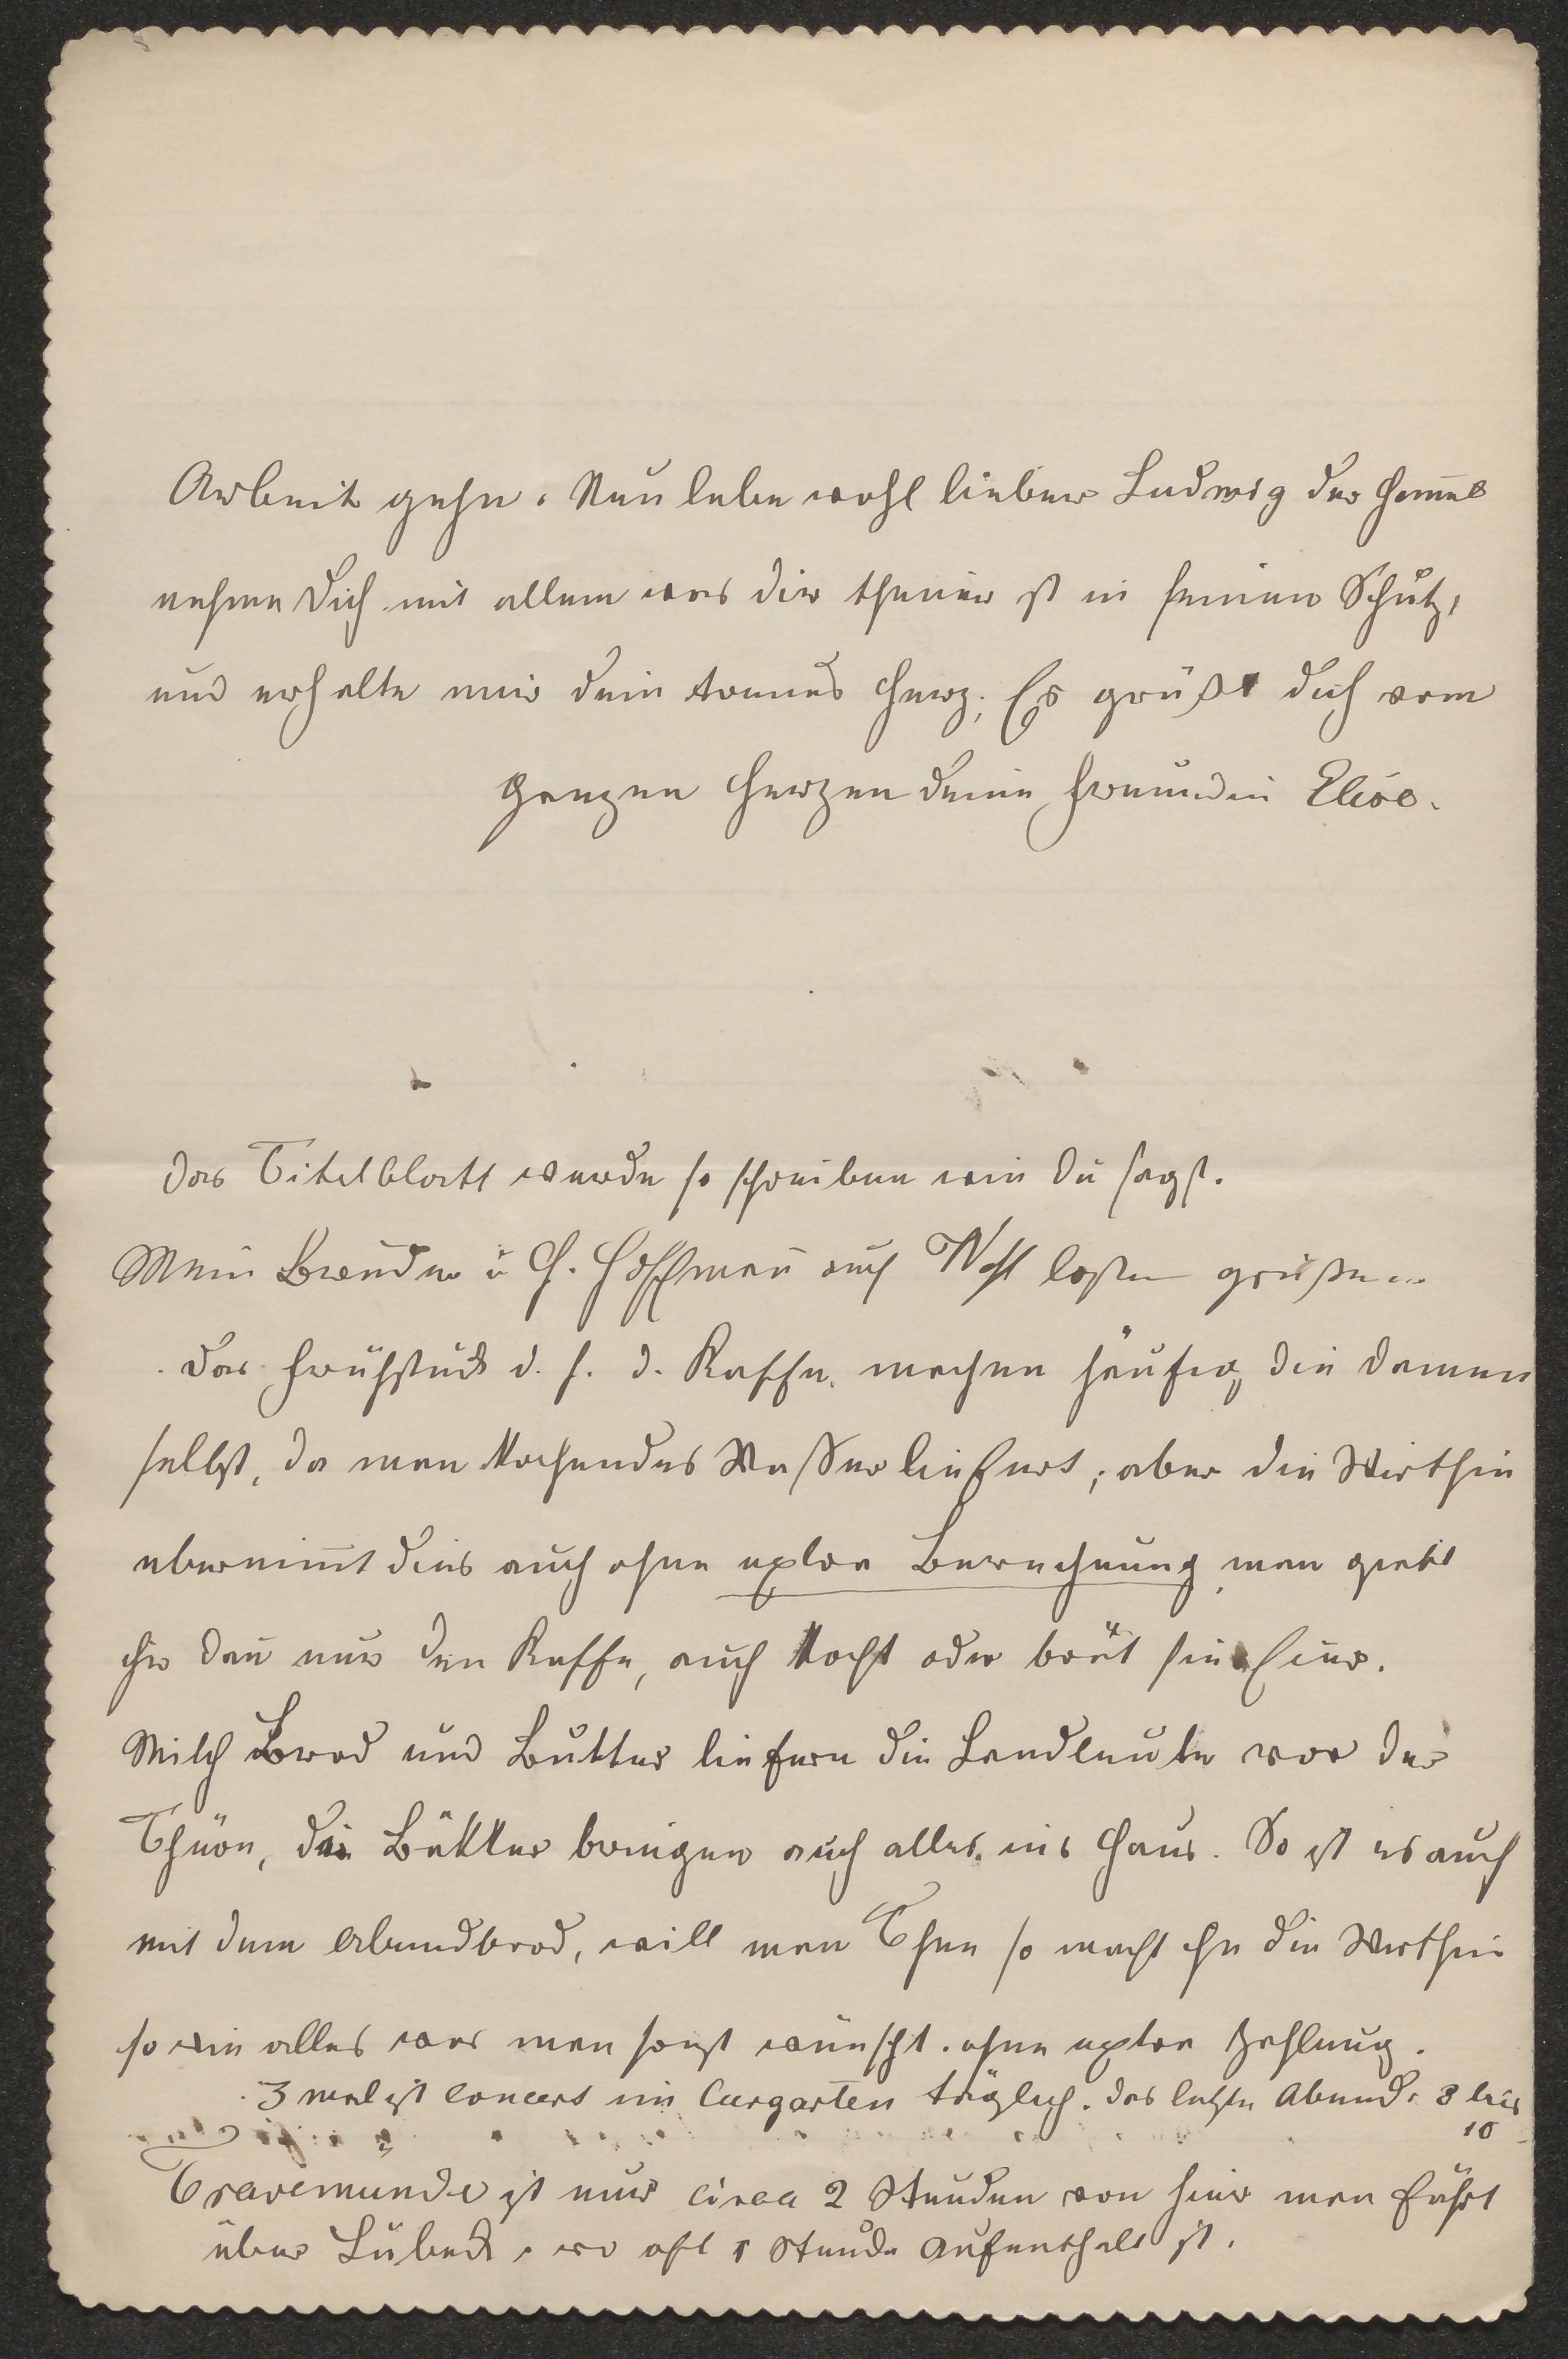 Arbeit gehn. Nun lebe wohl lieber Ludwig der Himel
nehme Dich mit allem was dir theuer ist in seinen Schutz,
und erhalte mir dein treues Herz; Es grüßt dich vom
ganzen Herzen deine Freundin Elise.
das Titelblatt werde so schreiben wie du sagst.
Mein Bruder u H. Hoffman auch laßen grüßen
das Frühstück d. h. d. Kaffe, machen häufig die Damen
selbst, da man kochendes Waßer liefert; aber die Wirthin
übernimt dies auch ohne extra Berechnung man giebt
ihr dan nur den Kaffe, auch kocht oder brät sie Eier.
Milch Brod und Butter liefern die Landleute vor der
Thüre, die Bäkker bringen auch alles ins Haus. So ist es auch
mit dem Abendbrod, will man Thee so macht ihn die Wirthin
so wie alles was man sonst wünscht. ohne extra Zahlung.
3 mal ist Concert im Curgarten täglich. das letzte Abends 8 bis
10
Travemünde ist nur circa 2 Stunden von hier man fährt
über Lübeck, wo oft 1 Stunde Aufenthalt ist.